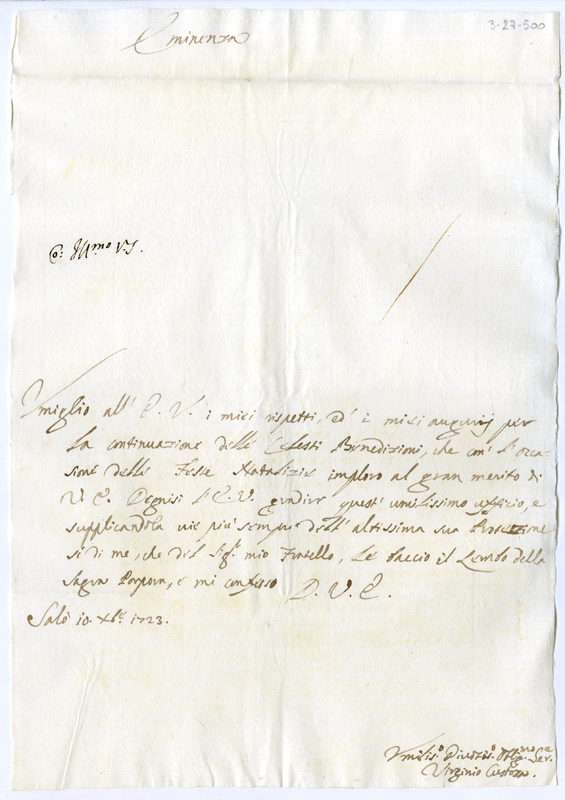 3-27-500
Eminenza
Co: Ill.mo V.S.
Umiglio all' E. V. i miei rispetti, ed' i miei augurij per
la continuazione delle Celesti Benedizioni, che con' l'occa-
sione delle Feste Natalizie imploro al gran merito di
V. E. Degnisi l'E. V. gradire quest' umilissimo ufficio, e
supplicandola vie piu' sempre dell' altissima sua Protezione
si di me, che del Sig.r mio Fratello, Le baccio il Lembo della
Sagra Porpora, e mi confesso D. V. E.
Salò 10. Xb.e 1723.
Umilis.o Divotis.o Obl.mo Ser.e
Virginio Custoza.